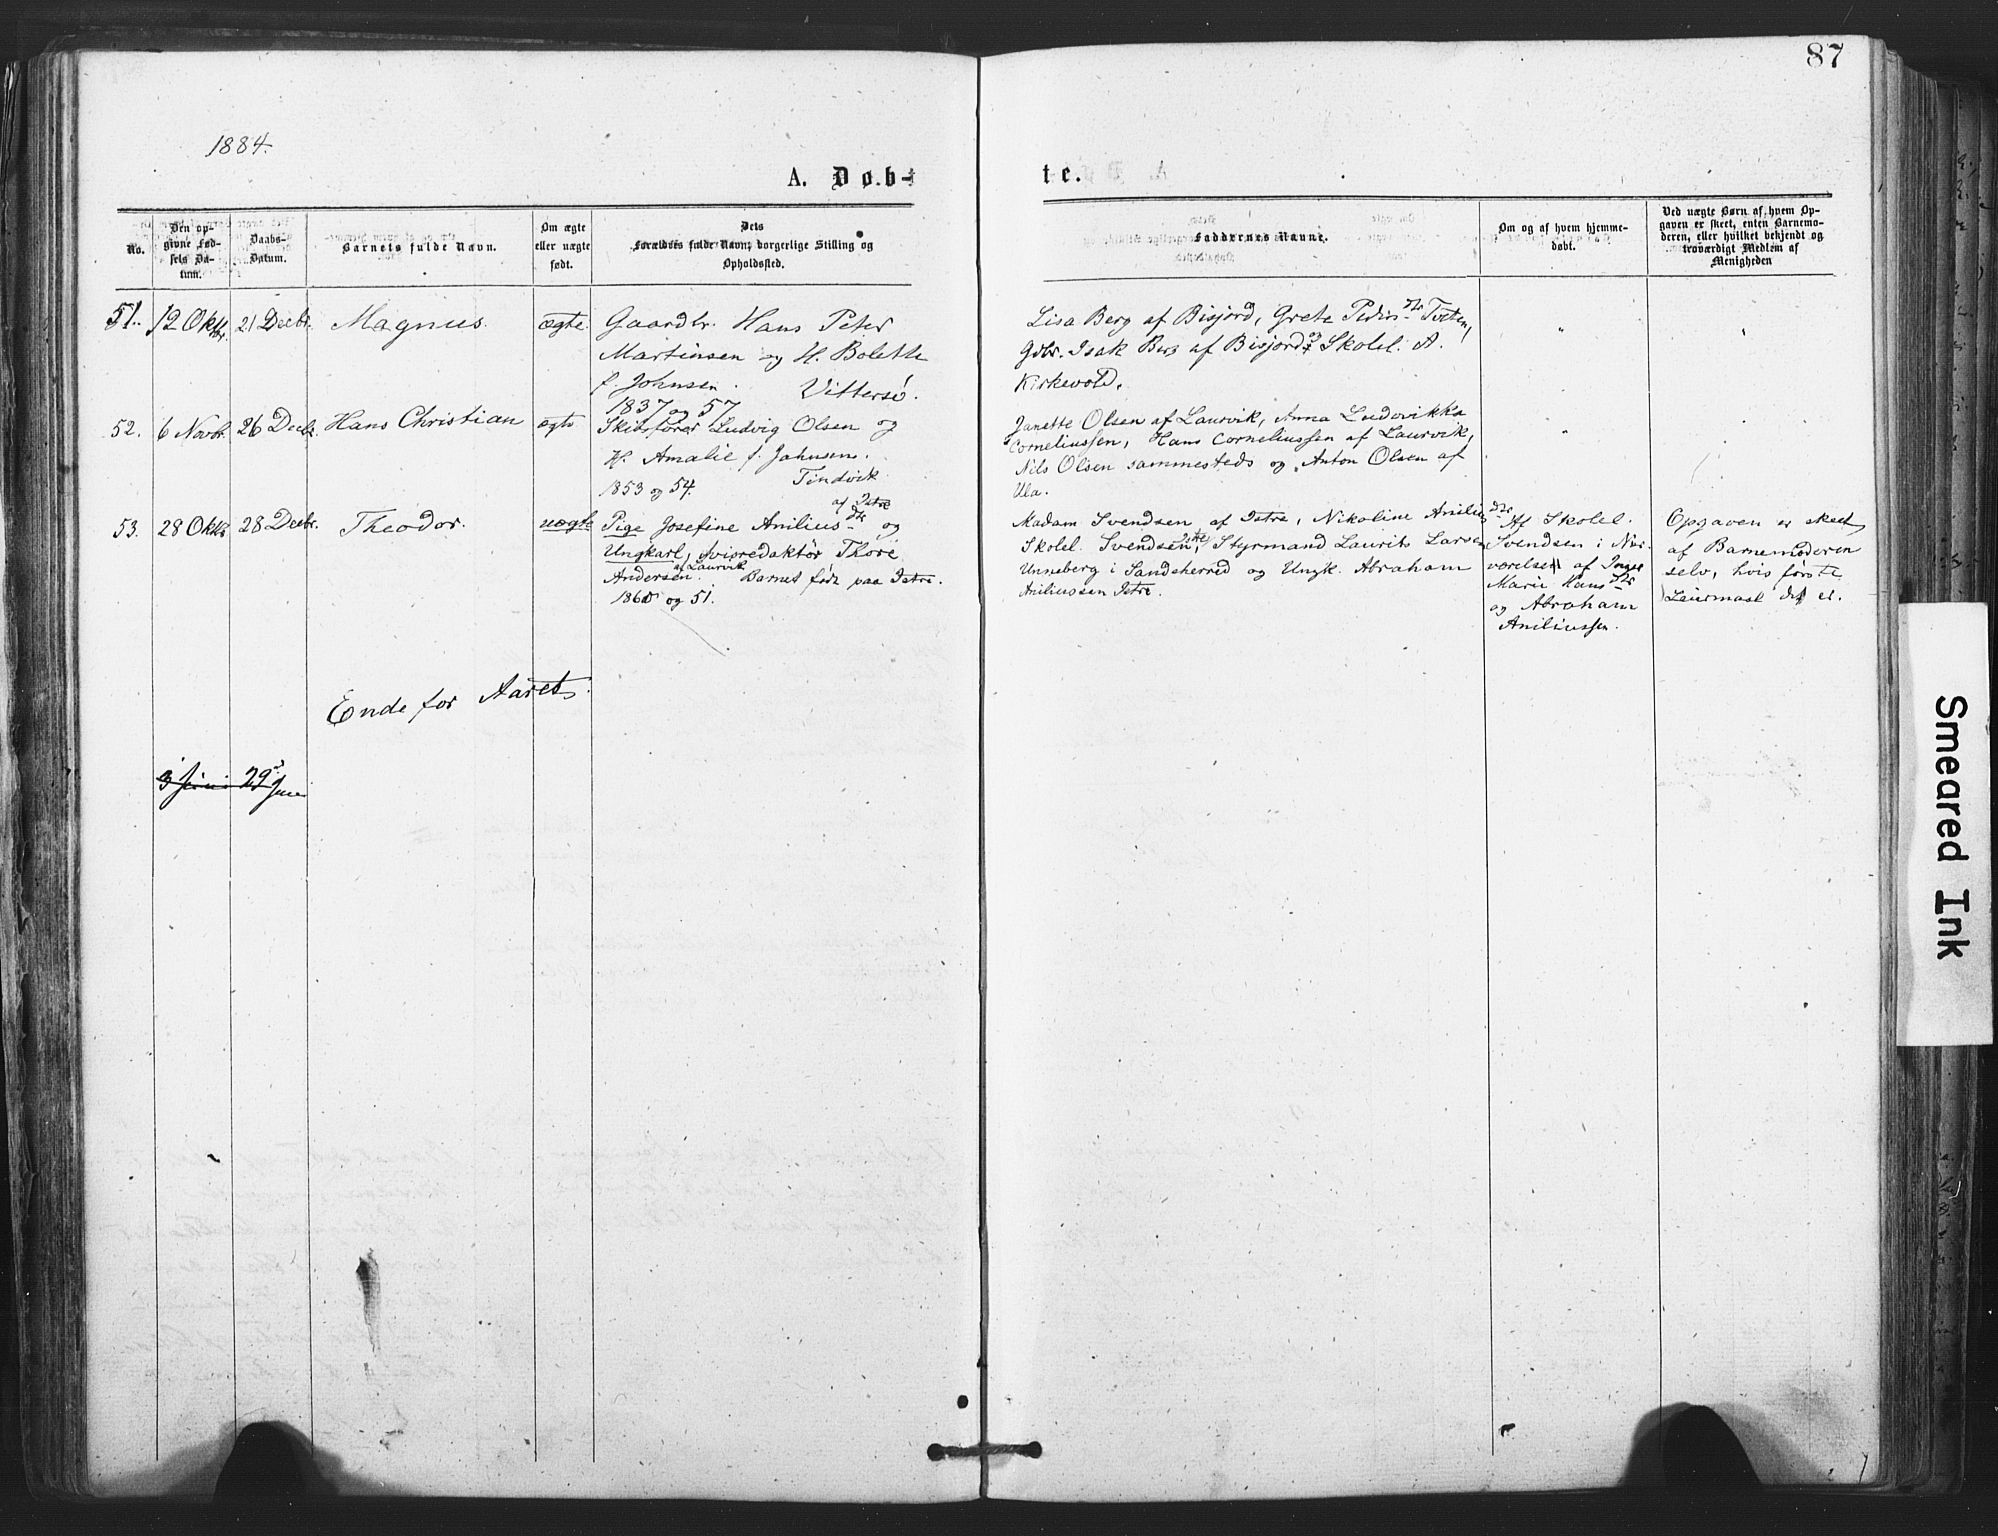 87
1884.
A. Døb-
te.
No.
Den op-
givne Fød-
sels Da-
tum.
Daabs-
Datum.
Barnets fulde Navn.
Om ægte
eller uægte
født.
Dets
Forældres fulde Navn, borgerlige Stilling og
Opholdssted.
Faddernes Navne.
Om og af hvem hjemme-
døbt.
Ved uægte Børn af hvem Op-
gaven er skeet, enten Barnemo-
deren, eller hvilket bekjendt og
troværdigt Medlem af
Menigheden
51. 12 Oktbr. 21 Decbr. Magnus. ægte. Gaardbr. Hans Peter
Martinsen og H. Bolette
f. Johnsen. Vittersø.
1837 og 57.
Lisa Berg af Bisjord, Grete Tveten,
Gdbr. Isak Berg af Bisjord, Skolel. A.
Kirkevold.
" "
52. 6 Novbr. 26 Decbr. Hans Christian ægte Skibsfører Ludvig Olsen og
H. Amalie f. Johnsen.
Tindvik
1853 og 54.
Janette Olsen af Laurvik, Anna Ludovikka
Corneliussen, Hans Corneliussen af Laurvik,
Nils Olsen sammesteds og Anton Olsen af
Ula.
"
53. 28 Oktbr. 28 Decbr. Theodor. uægte Pige Josefine Aniliusdtr af Istre og
Ungkarl, Avisredaktør Thore
Andersen af Laurvik. Barnet født paa Istre.
1860 og 51.
Madam Svendsen af Istre, Nikoline Aniliusdtr
Skolel. Svendsen, Istre, Styrmand Laurits Larsen
Unneberg i Sandeherred og Ungk. Abraham
Aniliussen Istre.
Af Skolel.
Svendsen i Nær-
værelse af Inger
Marie Hansdtr
og Abraham
Aniliussen.
Opgaven er skeet
af Barnemoderen
selv, hvis første
Leiermaal det er.
Ende for Aaret.
3 Juni 29 Juni
Smeared Ink